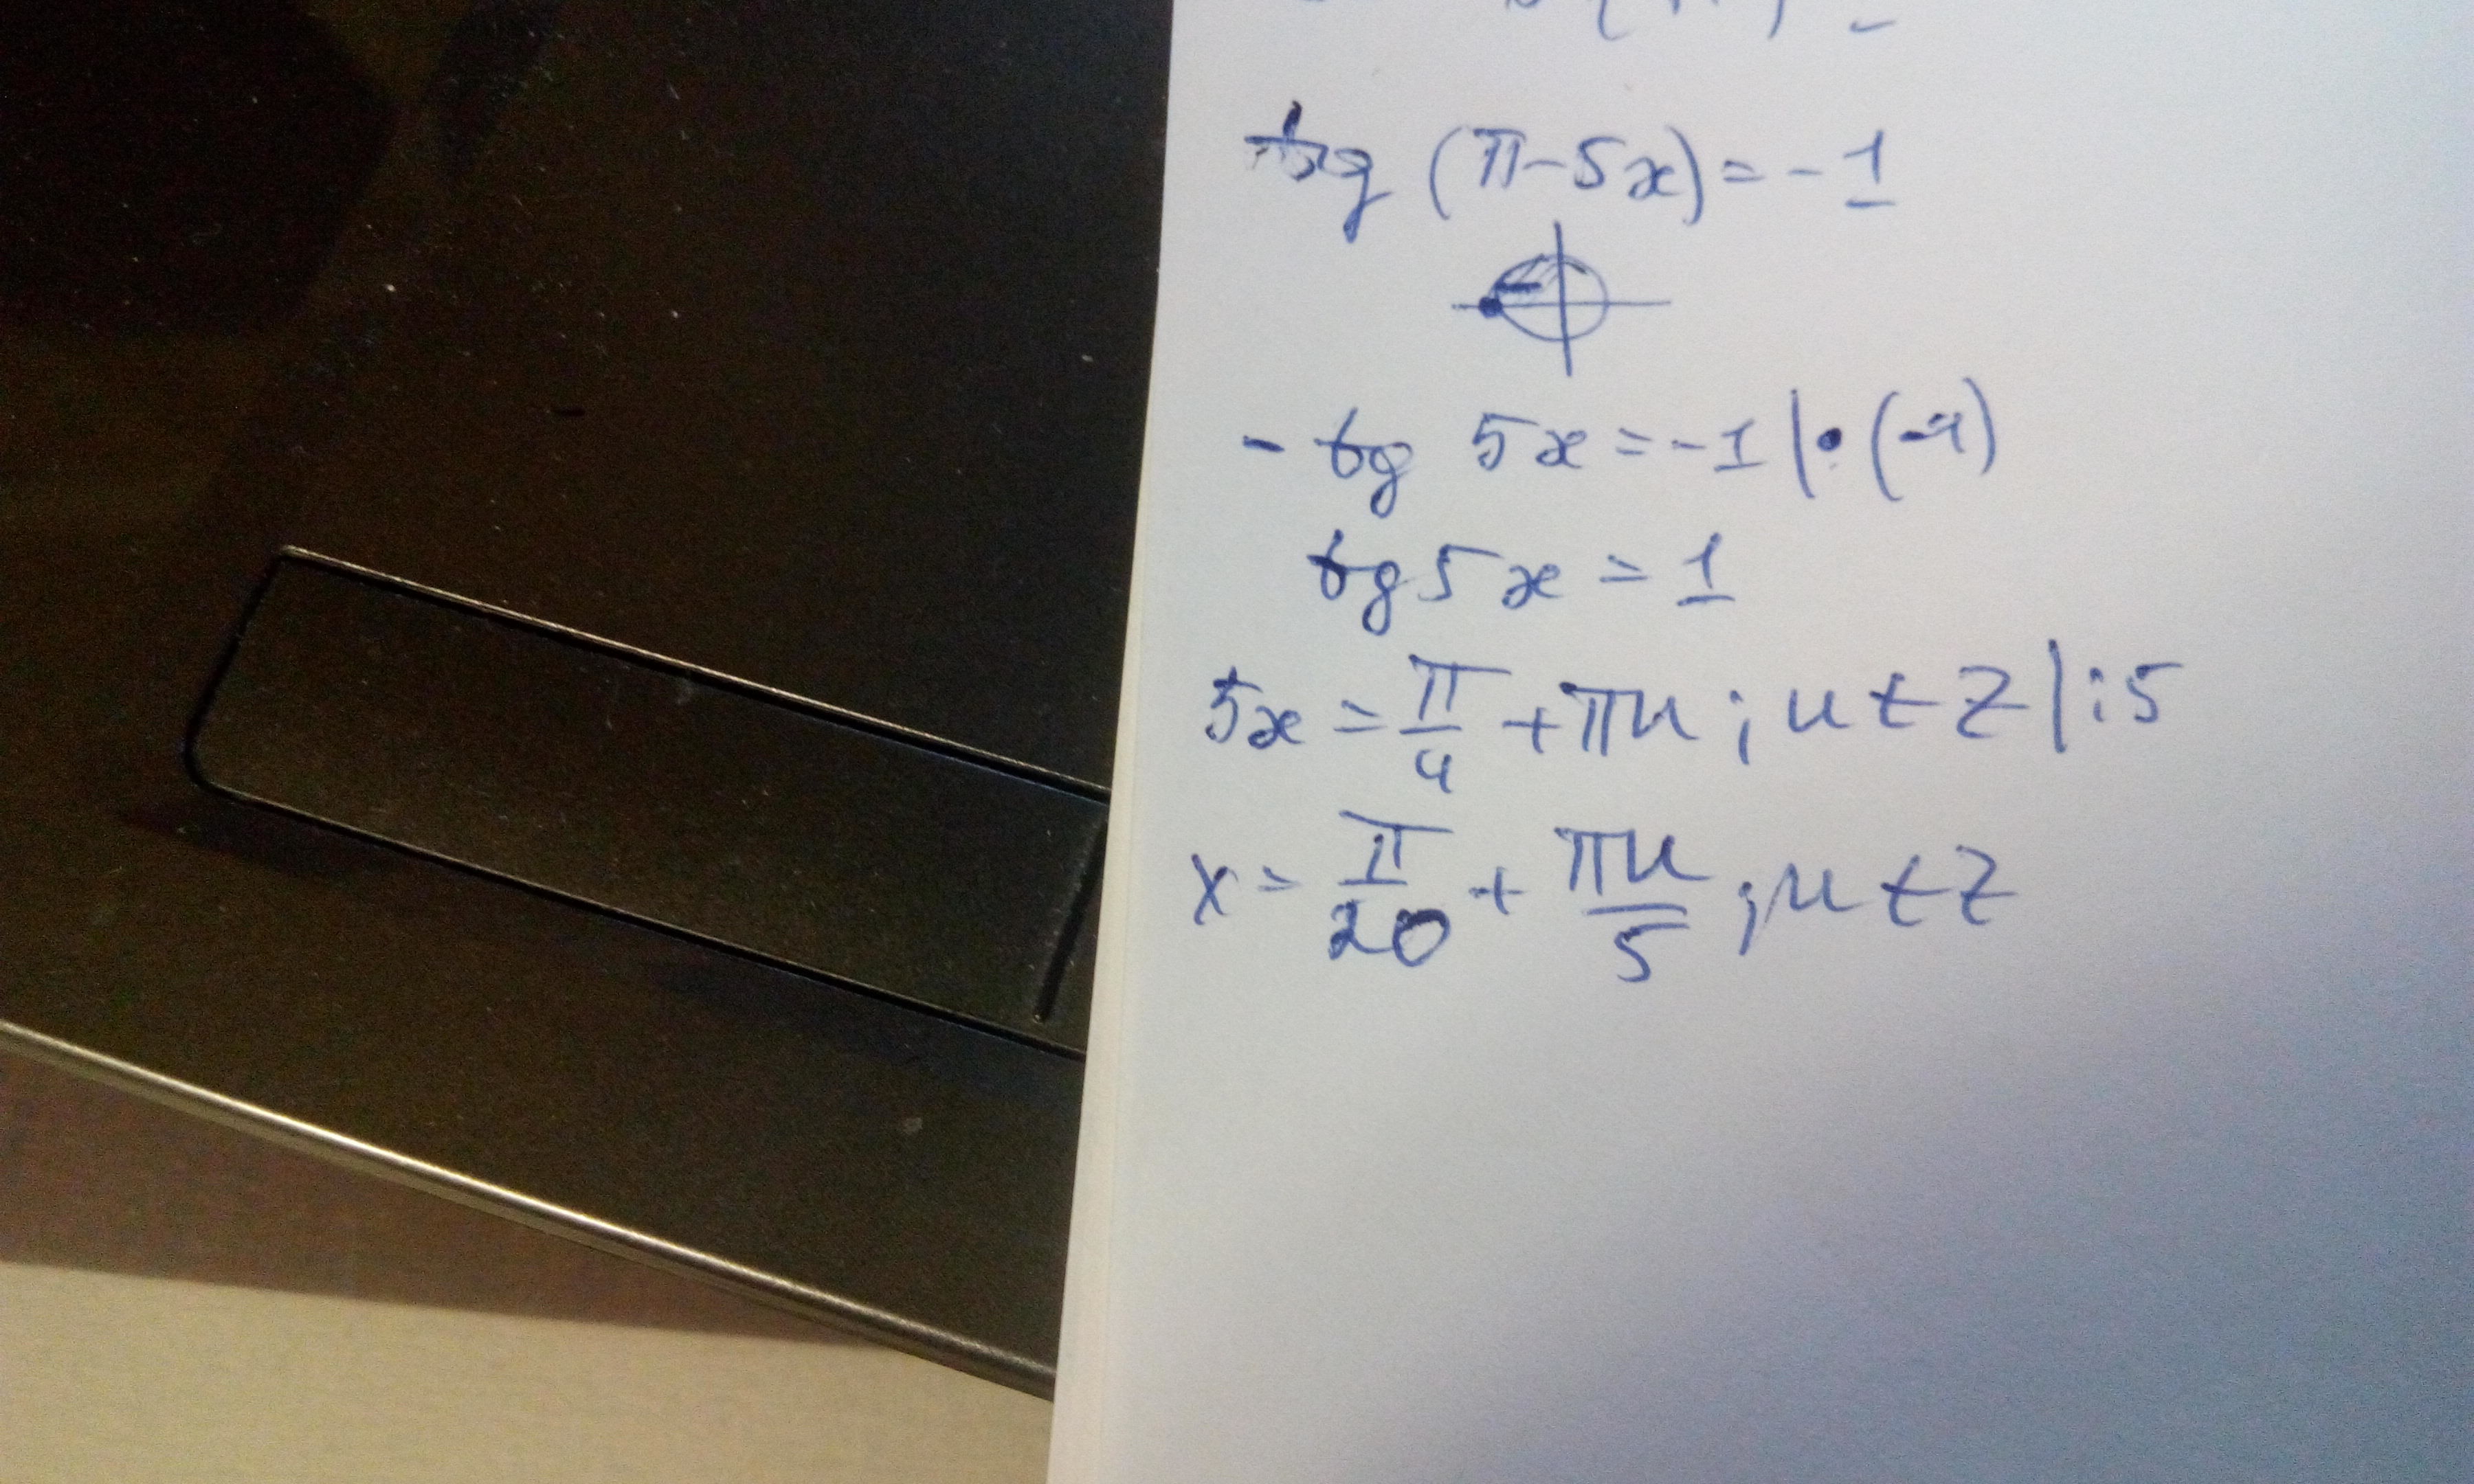 tg (π-5x) = -1
- tg 5x = -1 |• (-1)
tg 5x = 1
5x = π/4 + πn ; n ∈ Z | : 5
x = π/20 + πn/5 ; n ∈ Z